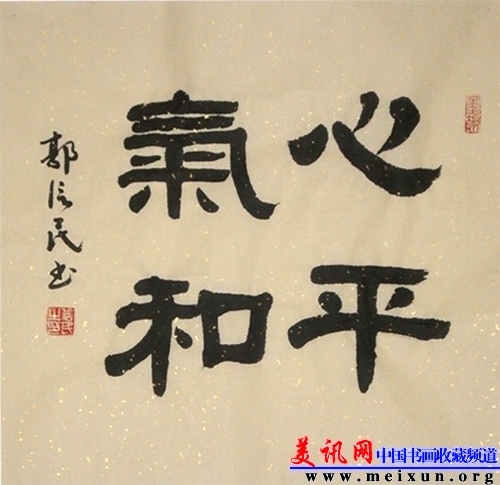 心平
氣和
郭信民书
美讯网
中国书画收藏频道
www.meixun.org